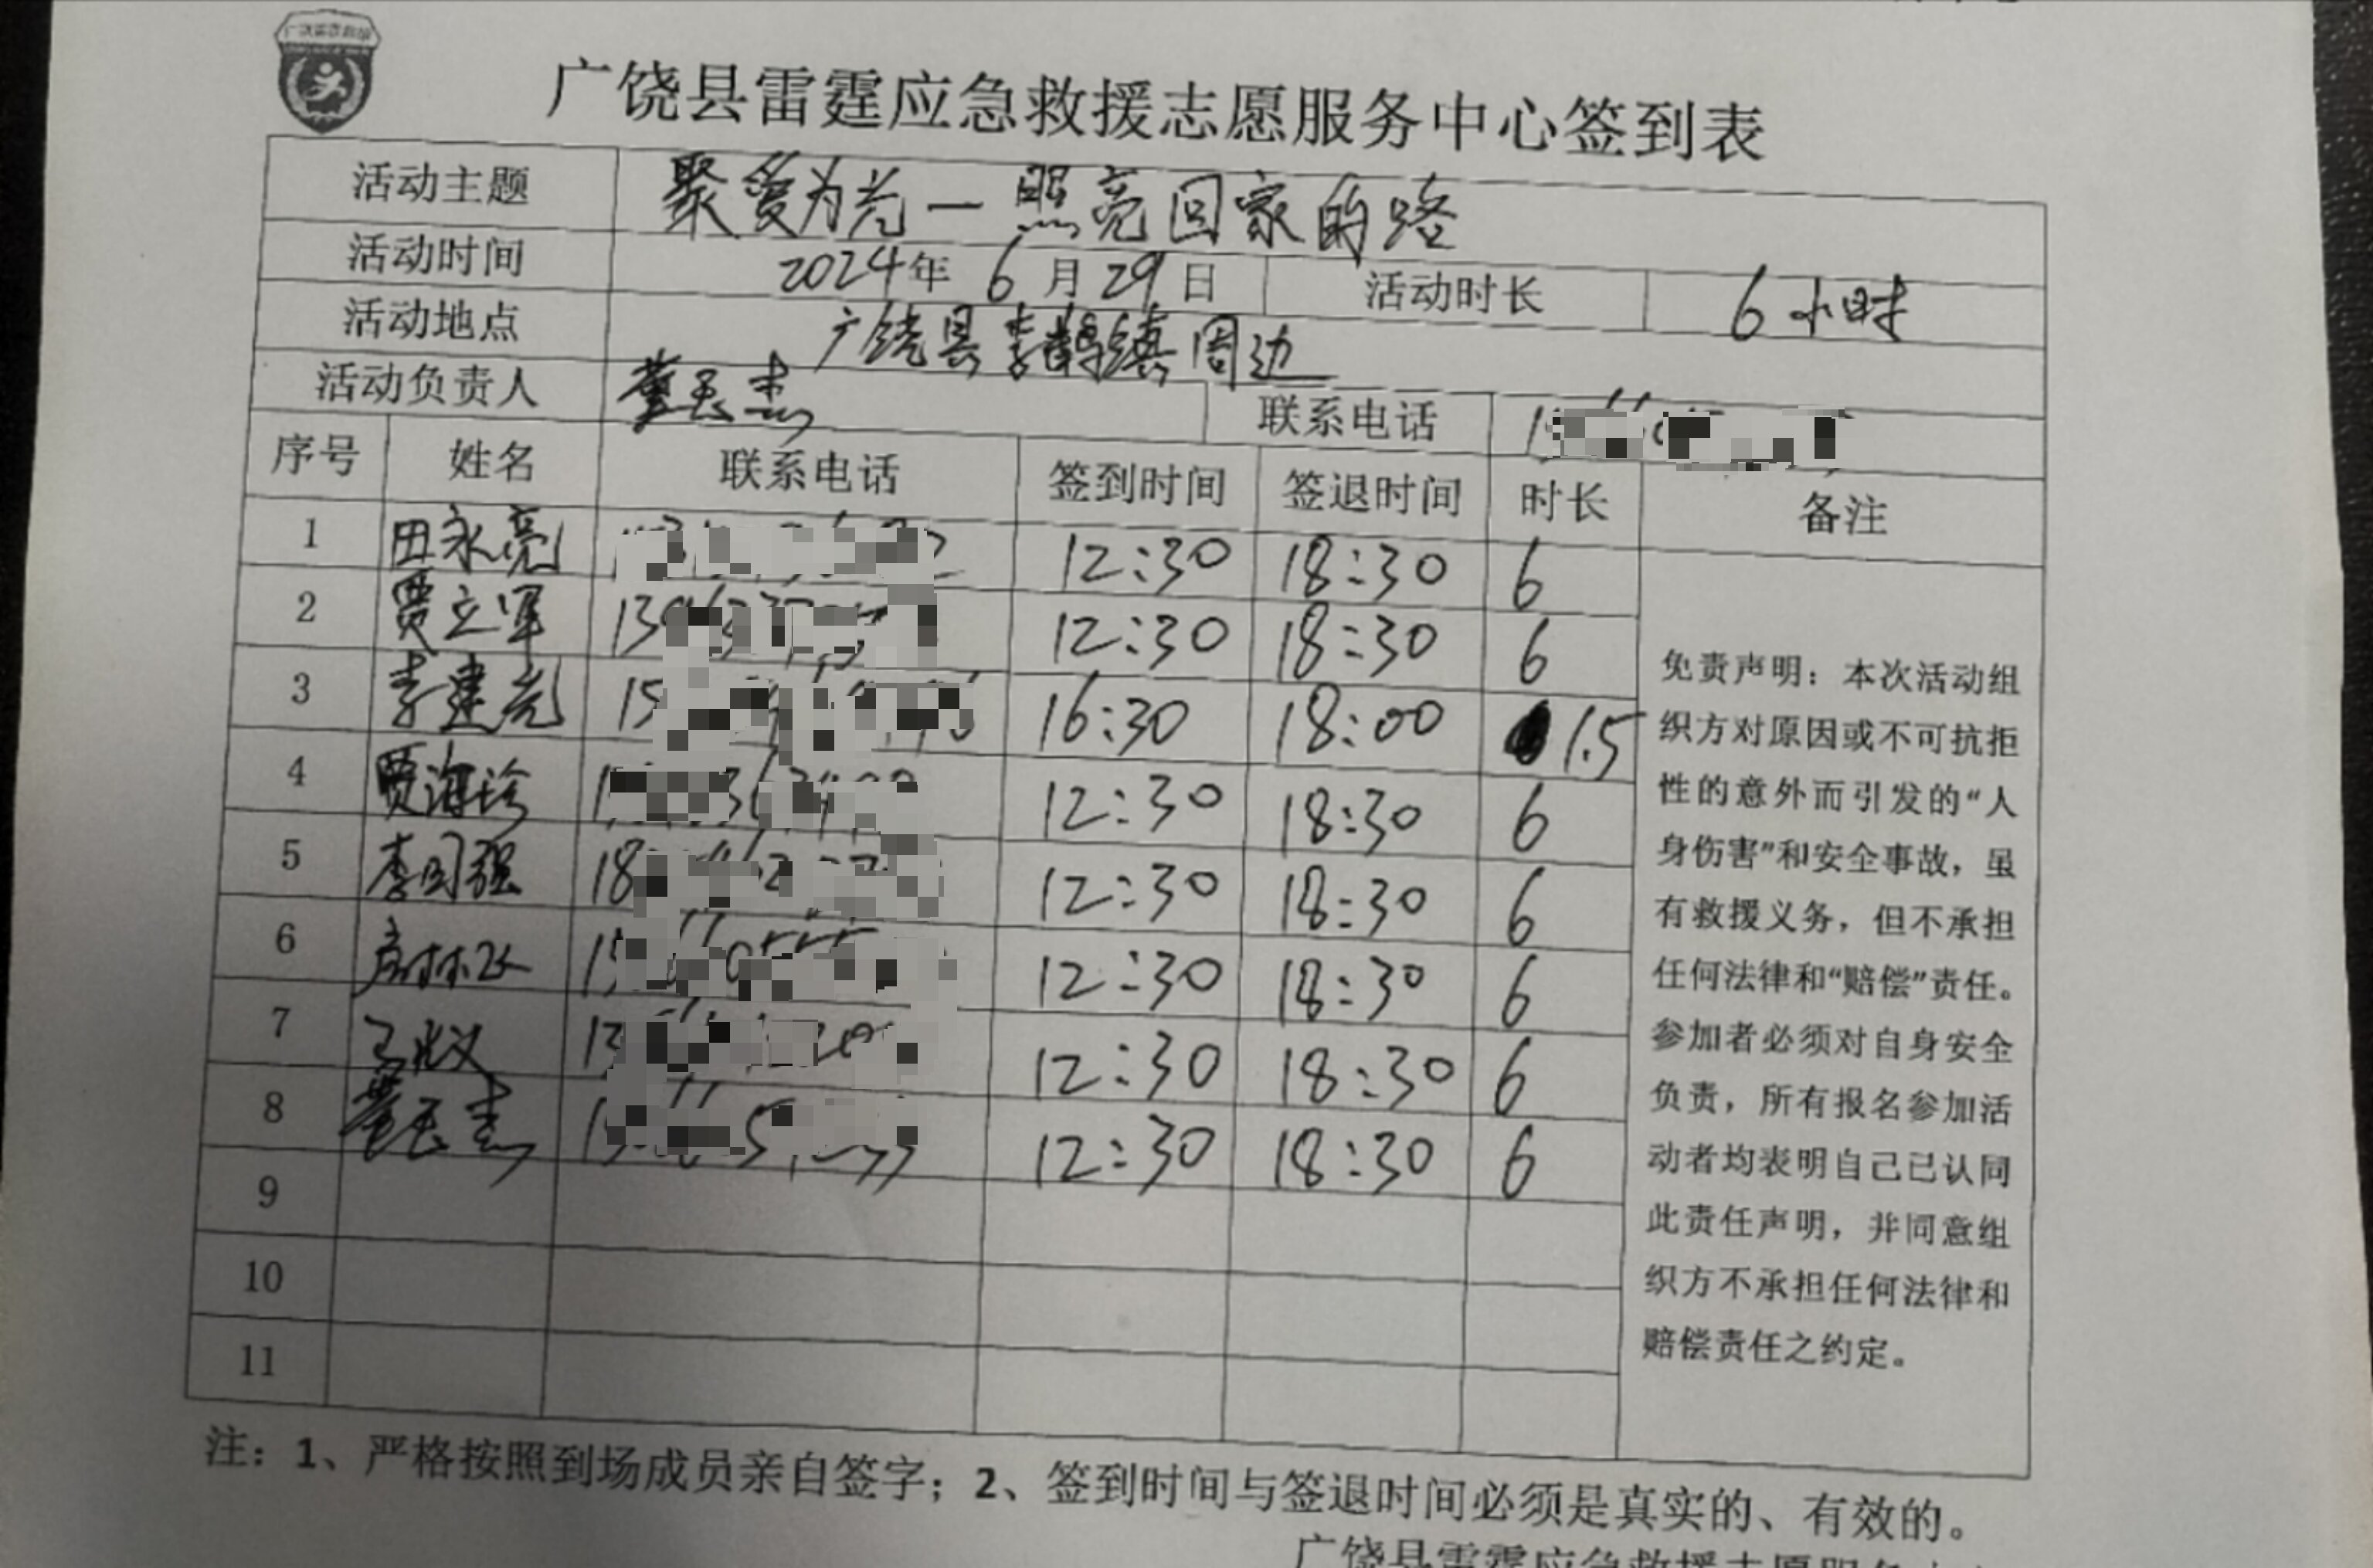 广饶县雷霆应急救援志愿服务中心签到表
活动主题 聚爱为光一照亮回家的路
活动时间 2024年 6月29日 活动时长 6小时
活动地点 广饶县李鹊镇周边
活动负责人 董玉杰 联系电话
序号 姓名 联系电话 签到时间 签退时间 时长 备注
1 田永亮 12:30 18:30 6
2 贾立军 12:30 18:30 6
3 李建光 16:30 18:00 1.5
4 贾海珍 12:30 18:30 6
5 李国强 12:30 18:30 6
6 12:30 18:30 6
7 12:30 18:30 6
8 董玉杰 12:30 18:30 6
9
10
11
免责声明：本次活动组
织方对原因或不可抗拒
性的意外而引发的“人
身伤害”和安全事故，虽
有救援义务，但不承担
任何法律和“赔偿”责任。
参加者必须对自身安全
负责，所有报名参加活
动者均表明自己已认同
此责任声明，并同意组
织方不承担任何法律和
赔偿责任之约定。
注：1、严格按照到场成员亲自签字；2、签到时间与签退时间必须是真实的、有效的。
广饶县雷霆应急救援志愿服务中心